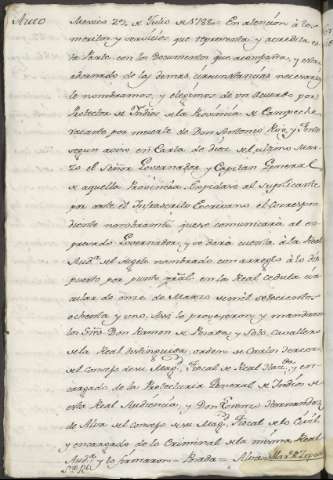 Auto
Mexico 22 de Julio de 1782. En atencion à los
meritos y servicios que representa y acredita es-
ta Parte con los Documentos que acompaña, y estar
adornado de las demas circunstancias necesarias
le nombramos, y elegimos de un acuerdo por
Protector de Indios de la Provincia de Campeche
vacante por muerte de Don Antonio Ruiz y
segun aviso en Carta de diez de ultimo Mar-
zo el Señor Governador y Capitan General
de aquella Provincia. Expidase al suplicante
por ante el Infrascrito Escrivano el correspon-
diente nombramiento que se comunicará al ex-
presado Governador, y se dará cuenta à la Real
Audª. del sugeto nombrado con arreglo à lo dis-
puesto por punto gral. en la Real cedula cir-
cular de once de Marzo de mil setecientos
ochenta y uno. Assi lo proveyeron, y mandaron
los Sres. Don Ramon de Posada, y Soto Cavallero
de la Real distinguida orden de Carlos tercero
del consejo de su Mag. Fiscal de Real Hacda., y en-
cargado de la Protecturia General de Indios de
esta Real Audiencia, y Don Lorenzo Hernandez
de Alva del consejo de su Mag. Fiscal de lo Civil
y encargado de lo Criminal de la misma Real
Audª. y lo firmaron = Posada = Alva =